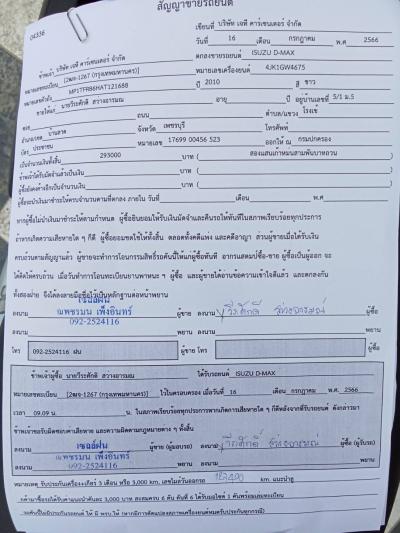 สัญญาขายรถยนต์
04336
เขียนที่ บริษัท เจพี คาร์เซนเตอร์ จำกัด
วันที่ 16 เดือน กรกฎาคม พ.ศ 2566
ข้าพเจ้า บริษัท เจพี คาร์เซนเตอร์ จำกัด ตกลงขายรถยนต์ ISUZU D-MAX
หมายเลขทะเบียน [2ฒจ-1267 (กรุงเทพมหานคร)] หมายเลขเครื่องยนต์ 4JK1GW4675
หมายเลขตัวถัง MP1TFR86HAT121688 ปี 2010 สี ขาว
ขายให้แก่ นายวีรศักดิ์ สว่างอารมณ์ อายุ ปี อยู่บ้านเลขที่ 5/1 ม.5
ซอย ถนน ตำบล/แขวง โรงเข้
อำเภอ/เขต บ้านลาด จังหวัด เพชรบุรี โทรศัพท์
บัตร ประชาชน หมายเลข 17699 00456 523 ออกให้ ณ กรมปกครอง
เป็นจำนวนเงินทั้งสิ้น 293000 บาท ( สองแสนเก้าหมื่นสามพันบาทถ้วน )
ข้าพเจ้าได้รับมัดจำแล้วเป็นเงิน บาท ( )
ผู้ซื้อคงค้างอีกเป็นจำนวนเงิน บาท ( )
ผู้ซื้อจะนำเงินมาชำระให้ครบจำนวนตามที่ตกลง ภายใน วันที่ เดือน พ.ศ
หากผู้ซื้อไม่นำเงินมาชำระให้ตามกำหนด ผู้ซื้อยินยอมให้ริบเงินมัดจำและคืนรถให้ทันทีในสภาพเรียบร้อยทุกประการ
ถ้าหากเกิดความเสียหายใด ๆ ก็ดี ผู้ซื้อยอมชดใช้ให้ทั้งสิ้น ตลอดทั้งคดีแพ่ง และคดีอาญา ส่วนผู้ขายเมื่อได้รับเงิน
ครบถ้วนตามสัญญาแล้ว ผู้ขายจะทำการโอนกรรมสิทธิ์รถคันนี้ให้แก่ผู้ซื้อทันที อากรแสตมป์ซื้อ-ขาย ผู้ซื้อเป็นผู้ออก จะ
ได้ติดให้ครบถ้วน เมื่อวันทำการโอนทะเบียนยานพาหนะ ฯ ผู้ซื้อ และผู้ขายได้อ่านข้อความเข้าใจดีแล้ว และตกลงกัน
ทั้งสองฝ่าย จึงได้ลงลายมือชื่อไว้เป็นหลักฐานต่อหน้าพยาน
เซลล์ฝน
ลงนาม เพชรมน เพ็งอินทร์ ผู้ขาย ลงนาม วีรศักดิ์ สว่างอารมณ์ ผู้ซื้อ
ลงนาม 092-2524116 พยาน ลงนาม พยาน
โทร 092-2524116 ฝน ผู้ขาย โทร ผู้ซื้อ
ข้าพเจ้าผู้ซื้อ นายวีรศักดิ์ สว่างอารมณ์ ได้รับรถยนต์ ISUZU D-MAX
หมายเลขทะเบียน [2ฒจ-1267 (กรุงเทพมหานคร)] ไว้ในครอบครอง เมื่อวันที่ 16 เดือน กรกฎาคม พ.ศ. 2566
เวลา 09.09 น. น. ในสภาพเรียบร้อยทุกประการหากเกิดการเสียหายใด ๆ ก็ดีหลังจากที่รับรถยนต์ ดังกล่าวมา
ข้าพเจ้าขอรับผิดชอบค่าเสียหาย และความผิดตามกฎหมายต่าง ๆ ทั้งสิ้น
เซลล์ฝน
ลงนาม เพชรมน เพ็งอินทร์ ผู้ขาย (ผู้มอบรถ) ลงนาม วีรศักดิ์ สว่างอารมณ์ ผู้ซื้อ (ผู้รับรถ)
ลงนาม 092-2524116 พยาน ลงนาม พยาน
หมายเหตุ รับประกันเครื่อง+เกียร์ 3 เดือน หรือ 3,000 km. เลขไมล์วันออกรถ km. แนะนำลู